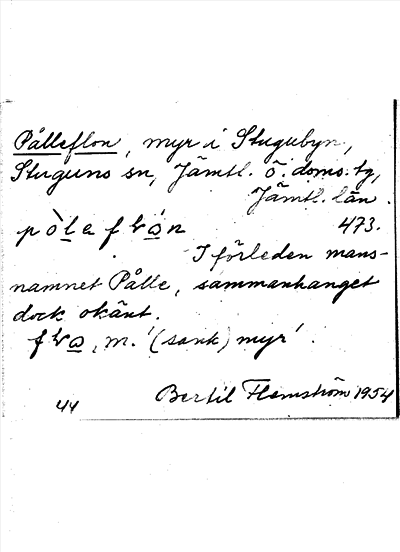 Pålleflon, myr i Stugubyn,
Stuguns sn, Jämtl. ö. doms. tg,
Jämtl. län.
473.
I förleden mans-
namnet Pålle, sammanhanget
dock okänt.
m. '(sank) myr'.
Bertil Flemström 1954
44